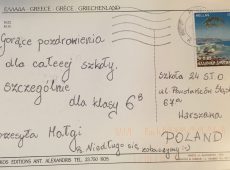 ΕΛΛΑΔΑ - GREECE - GRÈCE - GRIECHENLAND
Gorące pozdrowienia
dla całej szkoły,
szczególnie
dla klasy 6B
przesyła Małgi
Ps. Niedługo się
zobaczymy :)
ΕΛΛΑΣ
HELLAS
Szkoła 24 STO
ul. Powstańców Śląskich
67a
Warszawa
POLAND
EDITIONS ART. ALEXANDRIS TEL.